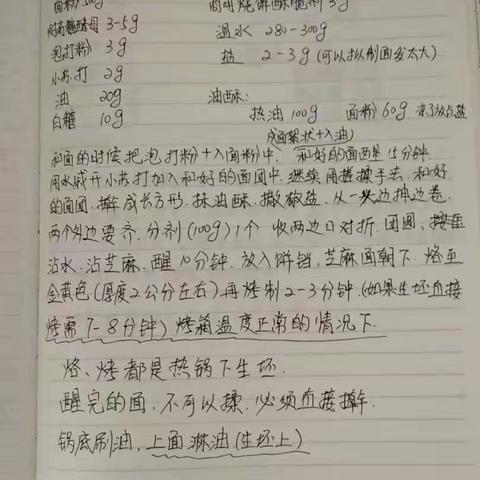 面粉 500g 商用烧饼酥脆剂 3g
耐高糖酵母 3-5g 温水 280-300g
泡打粉 3g 盐 2-3g (可以抑制面发太大)
小苏打 2g
油 20g 油酥:
白糖 10g 热油 100g 面粉 60g 凉了放点盐
成面絮状+入油)
和面的时候把泡打粉+入面粉中. 和好的面团醒15分钟.
用水碱开小苏打加入和好的面团中. 继续用搓揉手法. 和好
的面团. 擀成长方形. 抹油酥. 撒椒盐. 从一头边抻边卷.
两个外边要齐. 分剂(100g)1个 收两边口对折. 团圆.
沾水. 沾芝麻. 醒10分钟. 放入饼铛. 芝麻面朝下. 烙至
金黄色(厚度2公分左右)再烤制2-3分钟.(如果生坯直接
烤需7-8分钟)烤箱温度正常的情况下.
烙、烤都是热锅下生坯.
醒完的面. 不可以揉. 必须直接擀.
锅底刷油, 上面淋油(生坯上)